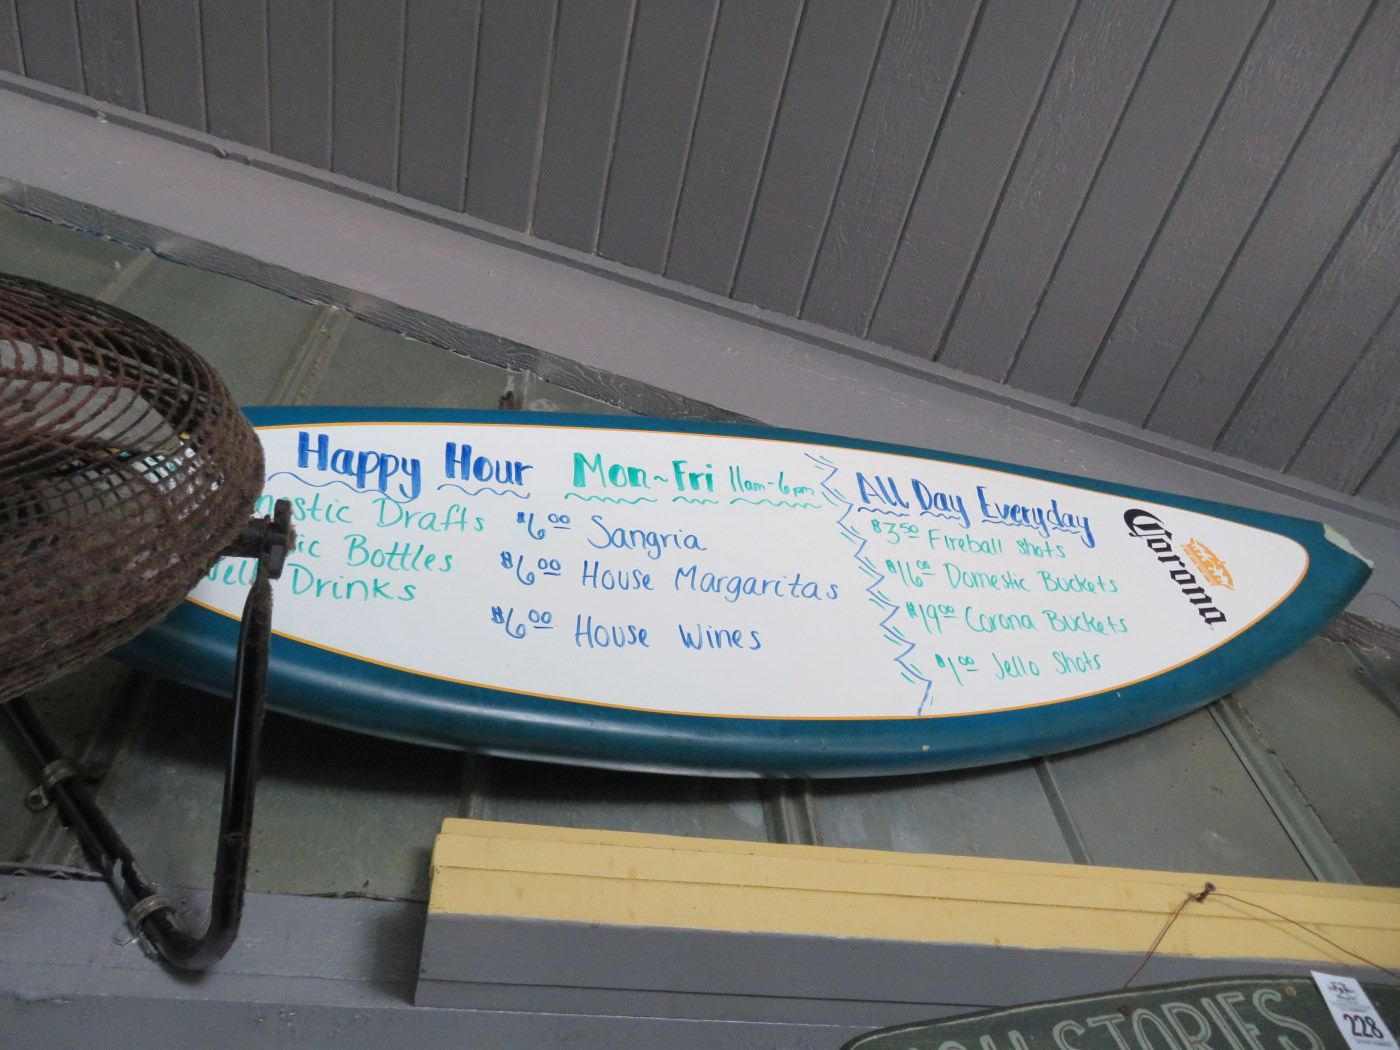 Happy Hour Mon~Fri 11am-6pm
Drafts
Bottles
Drinks
$6.00 Sangria
$6.00 House Margaritas
$6.00 House Wines
All Day Everyday
$3.50 Fireball shots
$16.00 Domestic Buckets
$19.00 Corona Buckets
$1.00 Jello Shots
Corona
STORIES
228